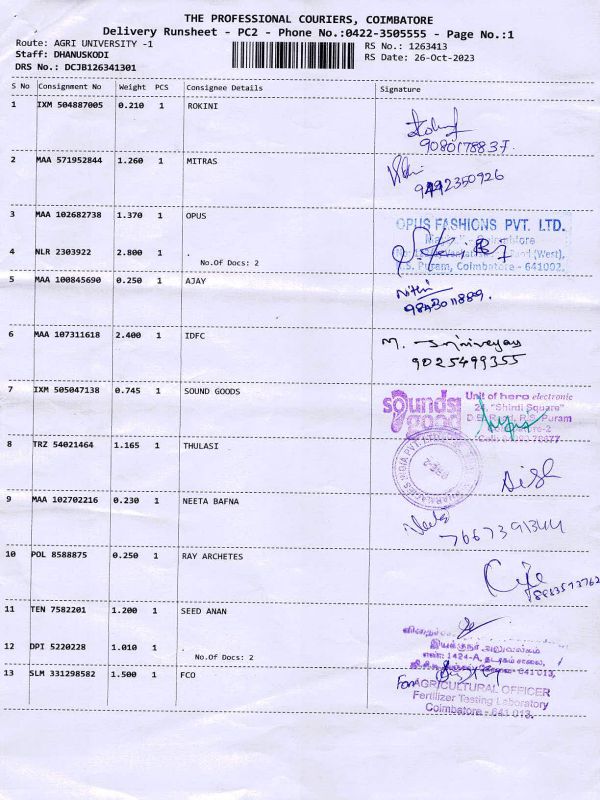 THE PROFESSIONAL COURIERS, COIMBATORE
Delivery Runsheet - PC2 - Phone No.:0422-3505555 - Page No.:1
Route: AGRI UNIVERSITY -1
RS No.: 1263413
Staff: DHANUSKODI
RS Date: 26-Oct-2023
DRS No.: DCJB126341301
S No Consignment No Weight PCS Consignee Details Signature
1 IXM 504887005 0.210 1 ROKINI
9080178837.
2 MAA 571952844 1.260 1 MITRAS
9442350926
3 MAA 102682738 1.370 1 OPUS
OPUS FASHIONS PVT. LTD.
4 NLR 2303922 2.800 1 .
No.Of Docs: 2
R.S. Puram, Coimbatore - 641002.
5 MAA 100845690 0.250 1 AJAY
Nithi
9843011889.
6 MAA 107311618 2.400 1 IDFC
M. Srinivasan
9025499355
7 IXM 505047138 0.745 1 SOUND GOODS
sounds good
Unit of hero electronic
24, "Shirdi Square"
D.B. Road, R.S. Puram
8 TRZ 54021464 1.165 1 THULASI
9 MAA 102702216 0.230 1 NEETA BAFNA
Neeta
7667391344
10 POL 8588875 0.250 1 RAY ARCHETES
11 TEN 7582201 1.200 1 SEED ANAN
இயக்குநர் அலுவலகம்
எண்: 1424-A, தடாகம் சாலை,
12 DPI 5220228 1.010 1 .
No.Of Docs: 2
641 013,
13 SLM 331298582 1.500 1 FCO
For
AGRICULTURAL OFFICER
Fertilizer Testing Laboratory
Coimbatore - 641 013.